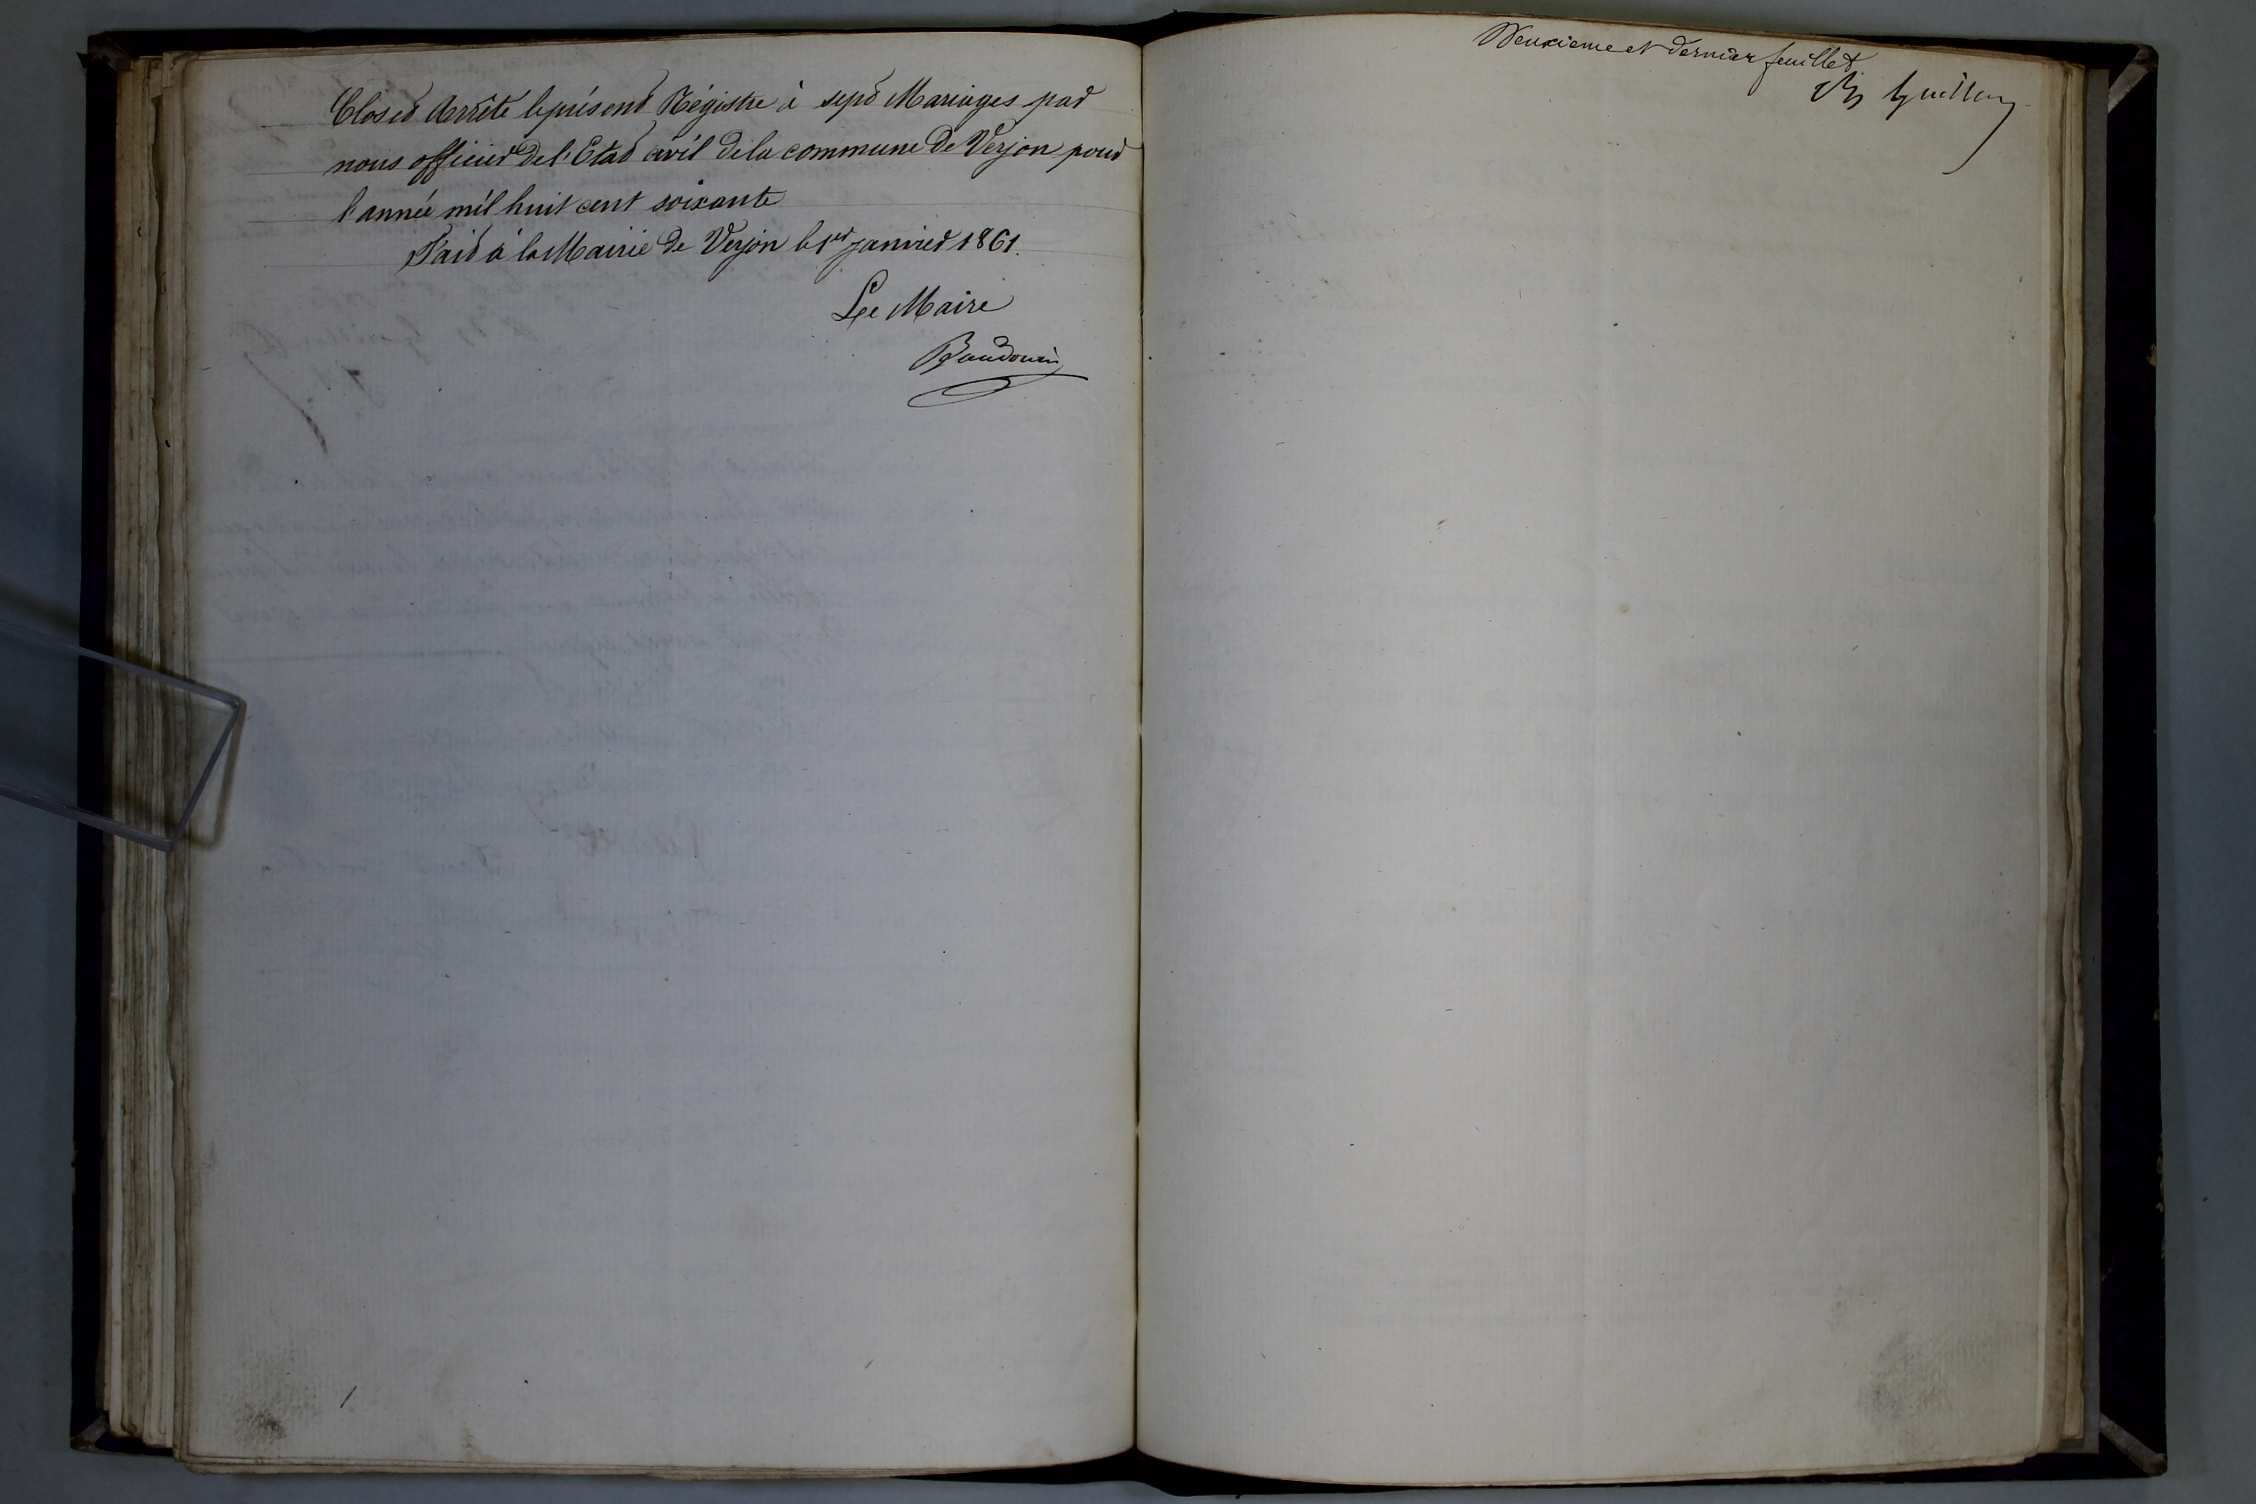 Clos et Arrêté le présent Régistre à sept Mariages par
nous officier de l'Etat civil de la commune de Verjon pour
l'année mil huit cent soixante
Fait à la Mairie de Verjon le 1er janvier 1861.
Le Maire
Baudouin
Deuxieme et dernier feuillet